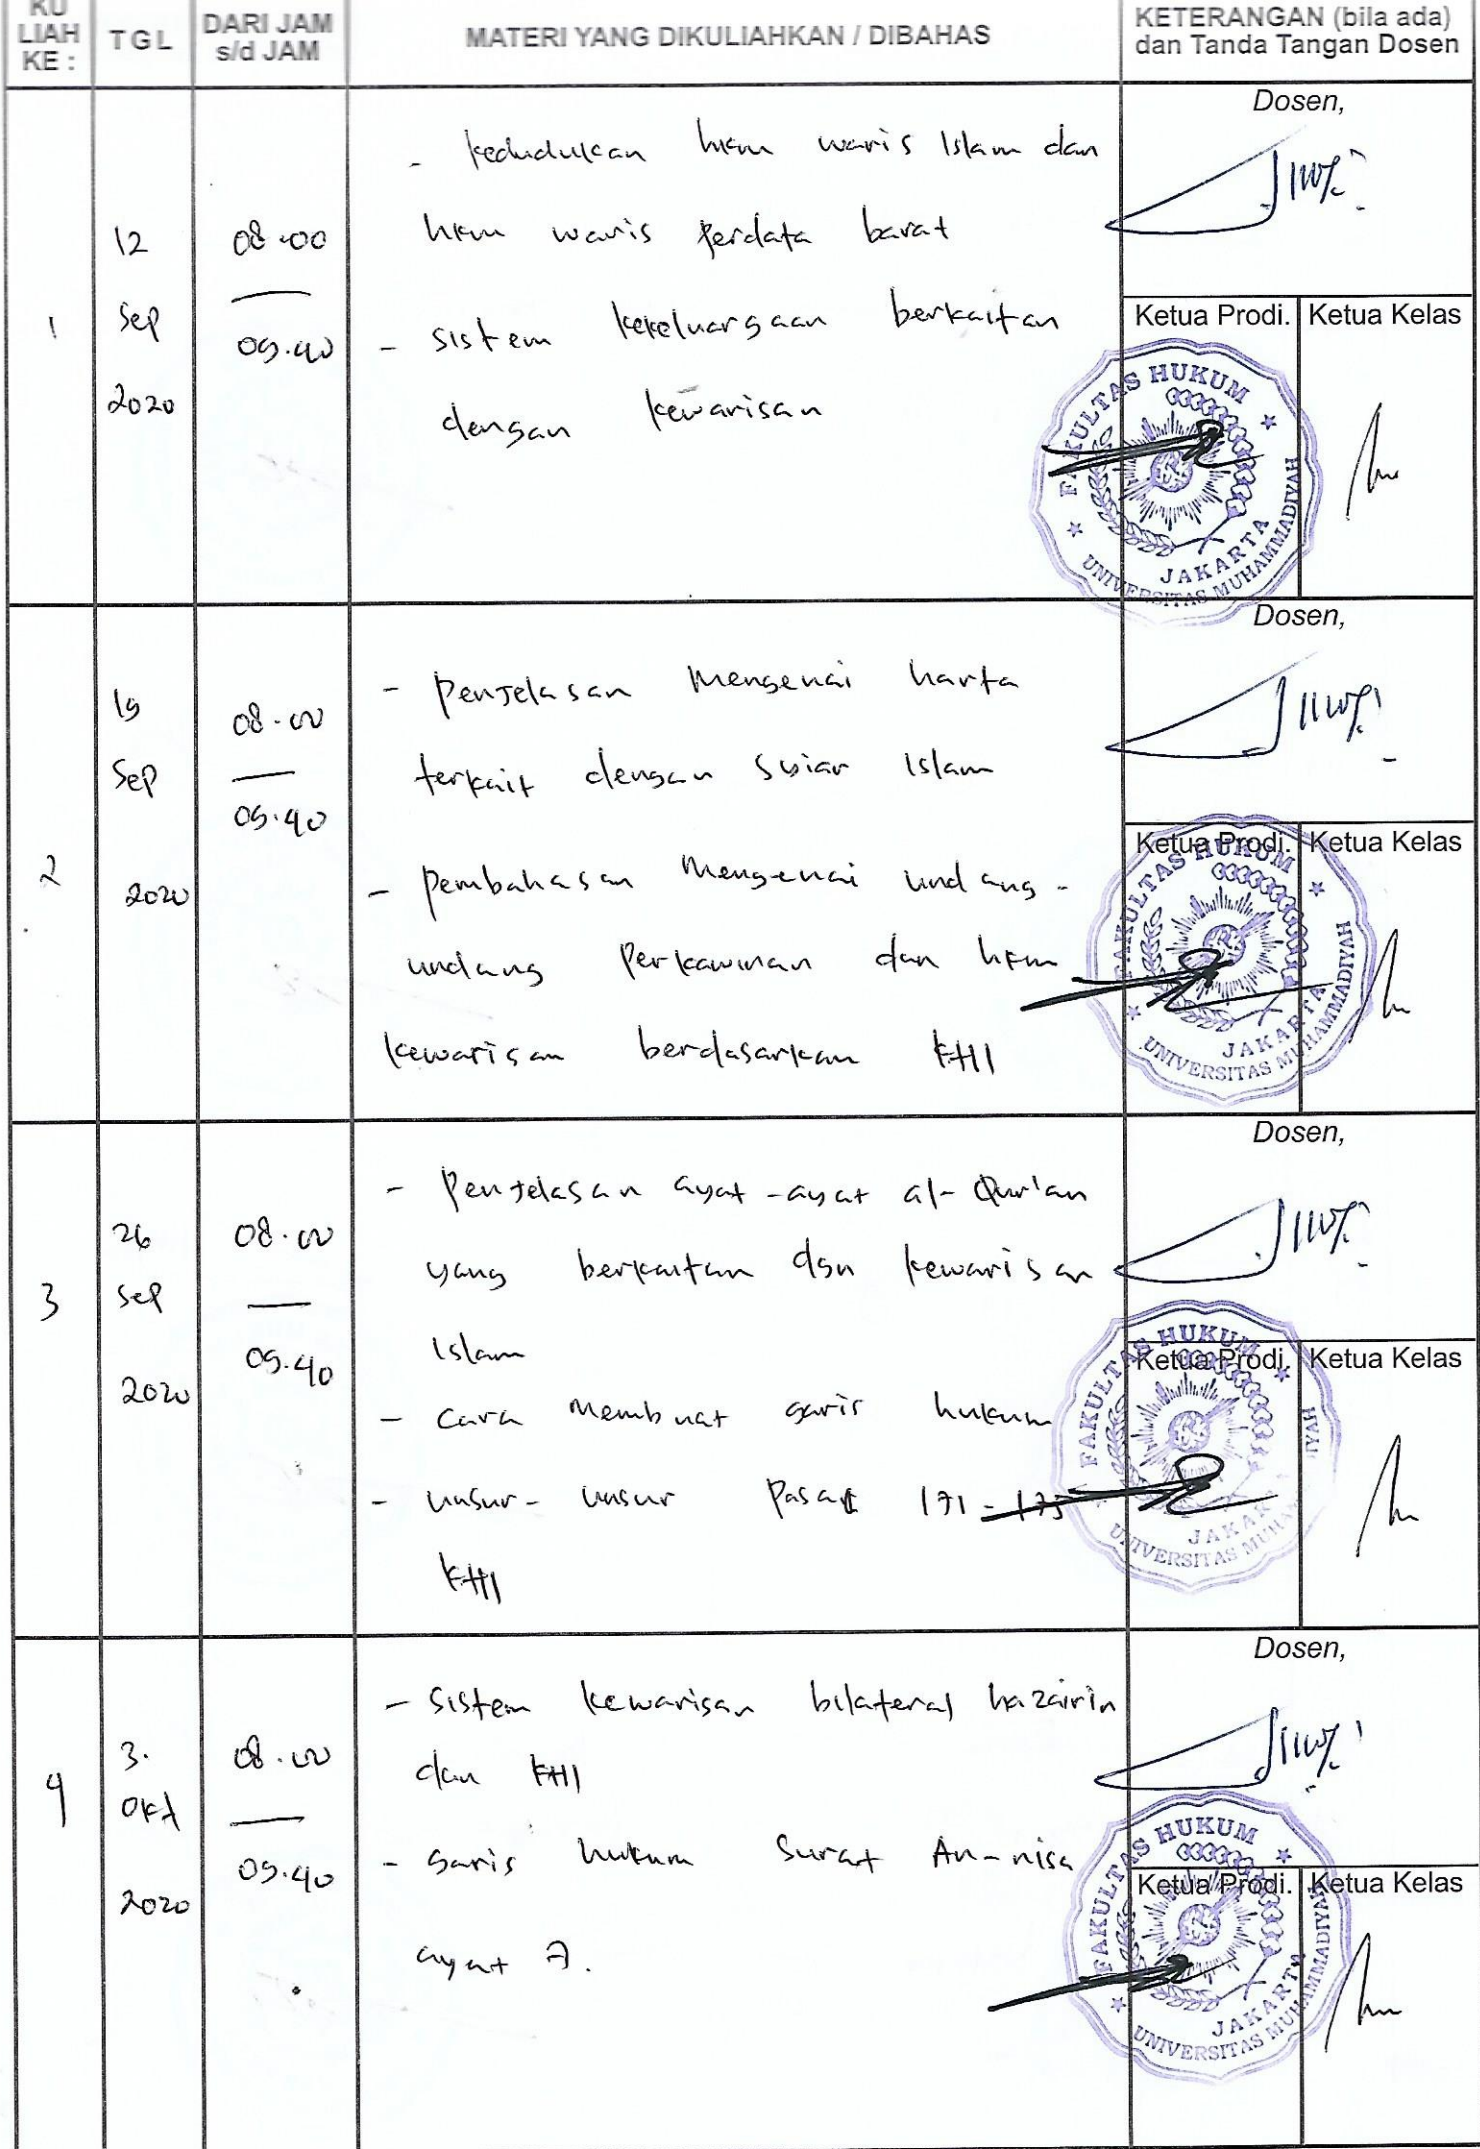 KU
LIAH
KE :
TGL
DARI JAM
s/d JAM
MATERI YANG DIKULIAHKAN / DIBAHAS
KETERANGAN (bila ada)
dan Tanda Tangan Dosen
1
12
Sep
2020
08.00
09.40
- kedudukan hkm waris Islam dan
hkm waris perdata barat
- sistem kekeluargaan berkaitan
dengan kewarisan
Dosen,
Ketua Prodi.
Ketua Kelas
FAKULTAS HUKUM
UNIVERSITAS MUHAMMADIYAH
JAKARTA
2
19
Sep
2020
08.00
09.40
- Penjelasan mengenai harta
terkait dengan Islam
- Pembahasan mengenai undang-
undang Perkawinan dan hkm
kewarisan berdasarkan KHI
Dosen,
Ketua Prodi.
Ketua Kelas
FAKULTAS HUKUM
UNIVERSITAS MUHAMMADIYAH
JAKARTA
3
26
Sep
2020
08.00
09.40
- Penjelasan ayat-ayat al-Qur'an
yang berkaitan dgn kewarisan
Islam
- cara membuat garis hukum
- unsur-unsur Pasal 171-175
KHI
Dosen,
Ketua Prodi.
Ketua Kelas
FAKULTAS HUKUM
UNIVERSITAS MUHAMMADIYAH
JAKARTA
4
3.
Okt
2020
08.00
09.40
- Sistem kewarisan bilateral hazairin
dan KHI
- garis hukum Surat An-nisa
ayat 7.
Dosen,
Ketua Prodi.
Ketua Kelas
FAKULTAS HUKUM
UNIVERSITAS MUHAMMADIYAH
JAKARTA